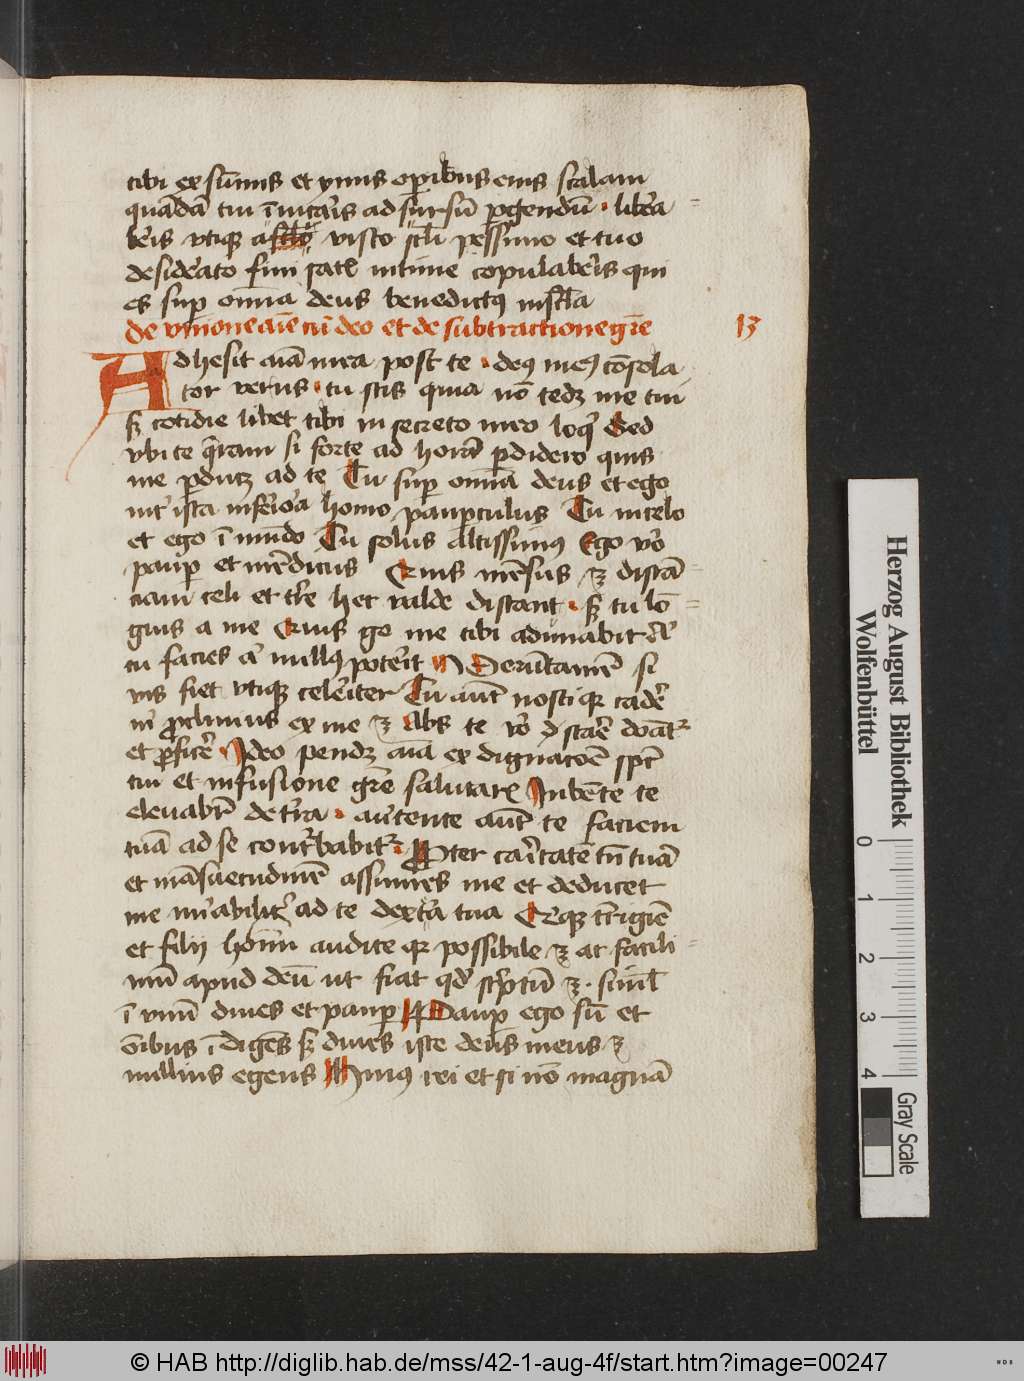 tibi ex su̅mis et ymis op̲ibus eius scalam
qua̅da̅ tui i̅uita̅is ad sursu̅ p̲gendu̅ · lib̓a
b̓is vtiqꝫ a visco sc̅li pessimo et tuo
desid̓ato fini intime copulab̓is qui
es sup̲ omnia deus benedictꝰ in
de vnione aīe cu̅ deo et de subtractione gr̅e 13
Adhesit aīa mea post te · deꝰ meꝰ co̅sola
tor verus · tu scis quia no̅ tedꝫ me tui
sꝫ cotidie libet tibi in secreto meo loqͥ Sed
vbi te q̅ram si forte ad hora̅ p̲didero quis
me p̲ducꝫ ad te Tu sup̲ omnia deus et ego
int̓ ista inf̓iora homo paup̲culus Tu in celo
et ego i̅ mu̅do Tu solus altissimus Ego v̓o
paup̲ et me̅dicus Quis me̅sus ꝫ dista̅
ciam celi et t̓re hec valde distant · sꝫ tu lo̅
gius a me Quis g̊ me tibi adunabit
tu facies et nullus pot̓it Veru̅tame̅ si
vis fiet vtiqꝫ cel̓iter Tu aut̅ nosti qꝫ cad̓e
in̓ p̲clinius ex me ꝫ Abs te v̓o
et p̲fic̓e Ideo pendꝫ aīa ex dignac̅oe sp̅c
tui et infusione gr̅e salutaꝝ Iube̅te te
eleuabit̓ de t̓ra · au̓tente aut̅ te faciem
tua̅ ad se cont̓babit̓ · Propter ca̓itate̅ tn̅ tua̅
et ma̅suetudine̅ assumes me et deducet
me mi̓abilit̓ ad te dext̓a tua Q̅qꝫ t̓rigīe
et filij homi̅ audite qꝛ possibile ꝫ ac facili
mu̅ apud deu̅ ut fiat qd̓ sc̓ptu̅ ꝫ · simul
i̅ vnu̅ diues et paup̲ Paup̲ ego su̅ et
o̅ibus i̅dige̅s sꝫ diues iste deus meus ꝫ
nullius egens Huiꝰ rei et si no̅ magna̅
Herzog August Bibliothek
Wolfenbüttel
0 1 2 3 4
Gray Scale
© HAB http://diglib.hab.de/mss/42-1-aug-4f/start.htm?image=00247